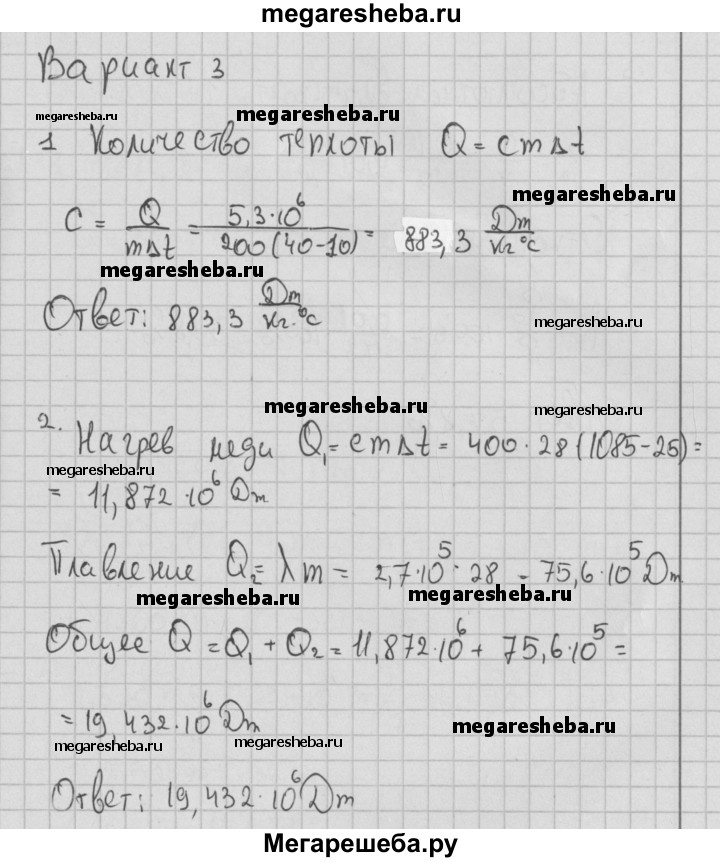 megaresheba.ru
Вариант 3
megaresheba.ru megaresheba.ru
1 Количество теплоты Q = cmΔt
megaresheba.ru
C = Q/(mΔt) = 5,3·10⁶/(200(40-10)) = 883,3 Дж/(кг°C)
megaresheba.ru
Ответ: 883,3 Дж/(кг·°C)
megaresheba.ru
megaresheba.ru megaresheba.ru
2. Нагрев меди Q₁ = cmΔt = 400·28(1085-25) =
megaresheba.ru
= 11,872·10⁶ Дж
Плавление Q₂ = λm = 2,7·10⁵·28 = 75,6·10⁵ Дж
megaresheba.ru megaresheba.ru
Общее Q = Q₁ + Q₂ = 11,872·10⁶ + 75,6·10⁵ =
= 19,432·10⁶ Дж
megaresheba.ru megaresheba.ru megaresheba.ru
Ответ: 19,432·10⁶ Дж
Мегарешеба.ру